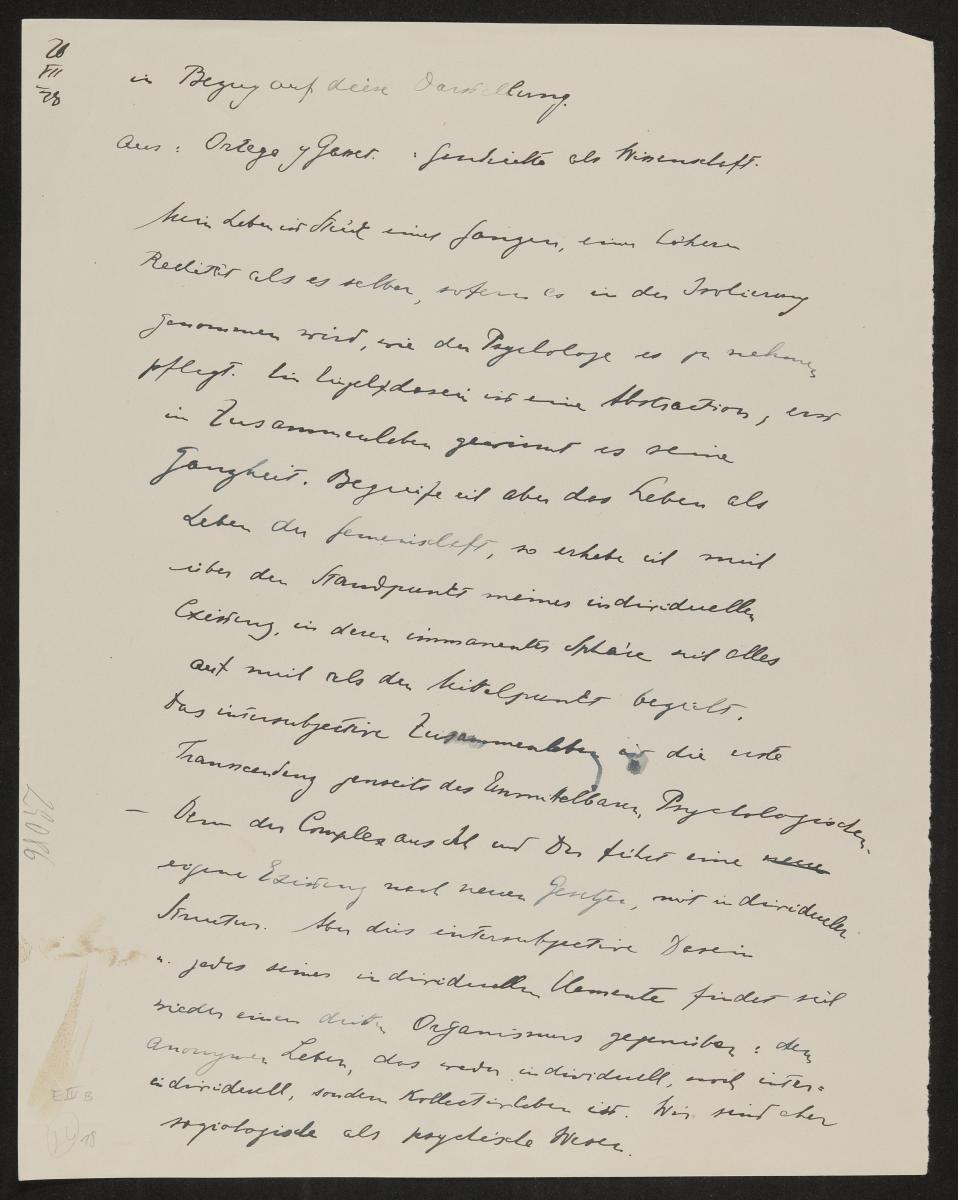 28
VII
28
in Bezug auf diese Darstellung.
aus: Ortega y Gasset. : Geschichte als Wissenschaft.
Mein Leben ist Stück eines Ganzen, einer höhern
Realität als es selber, sofern es in der Isolierung
genommen wird, wie der Psychologe es zu nehmen
pflegt. Ein Einzeldasein ist eine Abstraction, erst
in Zusammenleben gewinnt es seine
Ganzheit. Begreife ich aber das Leben als
Leben der Gemeinschaft, so erhebe ich mich
über den Standpunkt meiner individuellen
Existenz, in deren immanenter Sphäre sich alles
auf mich als den Mittelpunkt bezieht.
Das intersubjective Zusammenleben ist die erste
Transcendenz jenseits des Unmittelbaren, Psychologischen.
– Denn der Complex aus Ich und Du führt eine neue
eigene Existenz nach neuen Gesetzen, mit individueller
Structur. Aber dies intersubjective Dasein
u. jedes seiner individuellen Elemente findet sich
wieder einen dritten Organismus gegenüber: dem
anonymen Leben, das weder individuell, noch inter=
individuell, sondern Kollectivleben ist. Wir sind eher
soziologische als psychische Wesen.
E IV B
18